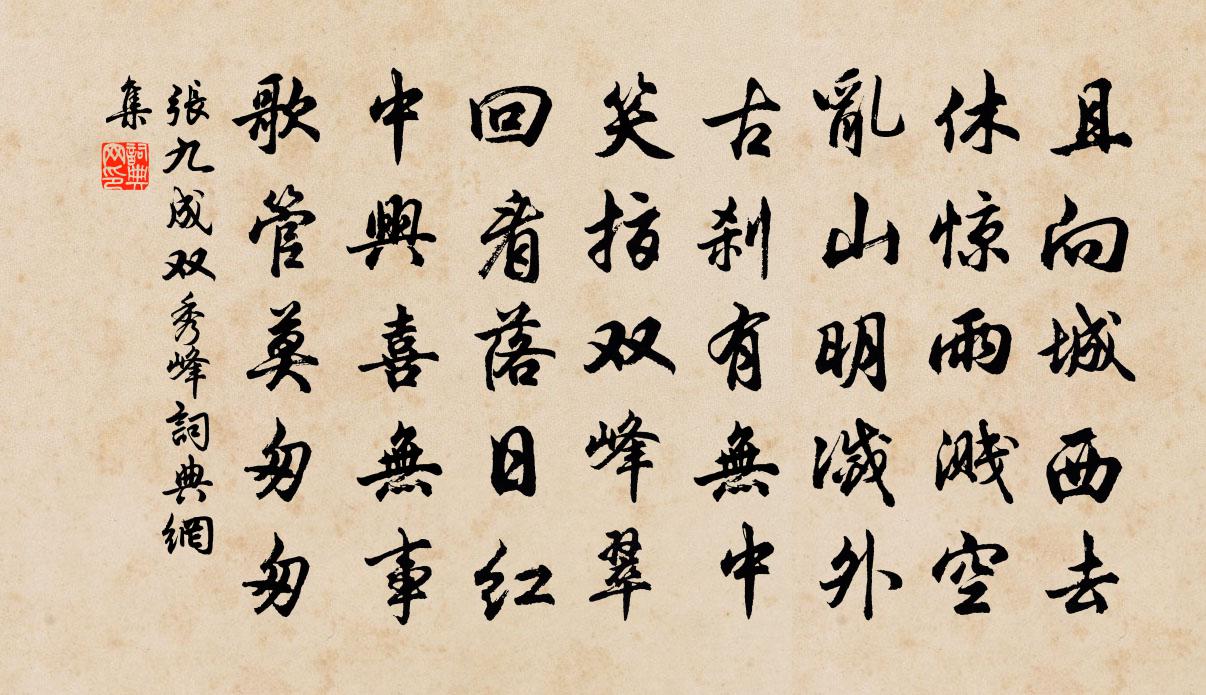 且向城西去
休惊雨溅空
亂山明滅外
古刹有無中
笑指双峰翠
回看落日红
中興喜無事
歌管莫匆匆
張九成双秀峰詞典網
集
詞典
网印